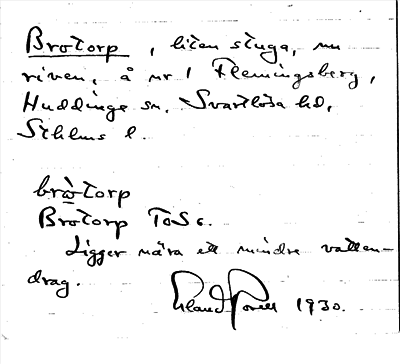 Brotorp, liten stuga, nu
riven, å nr 1 Flemingsberg,
Huddinge sn, Svartlösa hd,
Sthlms l.
bròtorp
Brotorp ToSc.
Ligger nära ett mindre vatten-
drag.
Erland 1930.